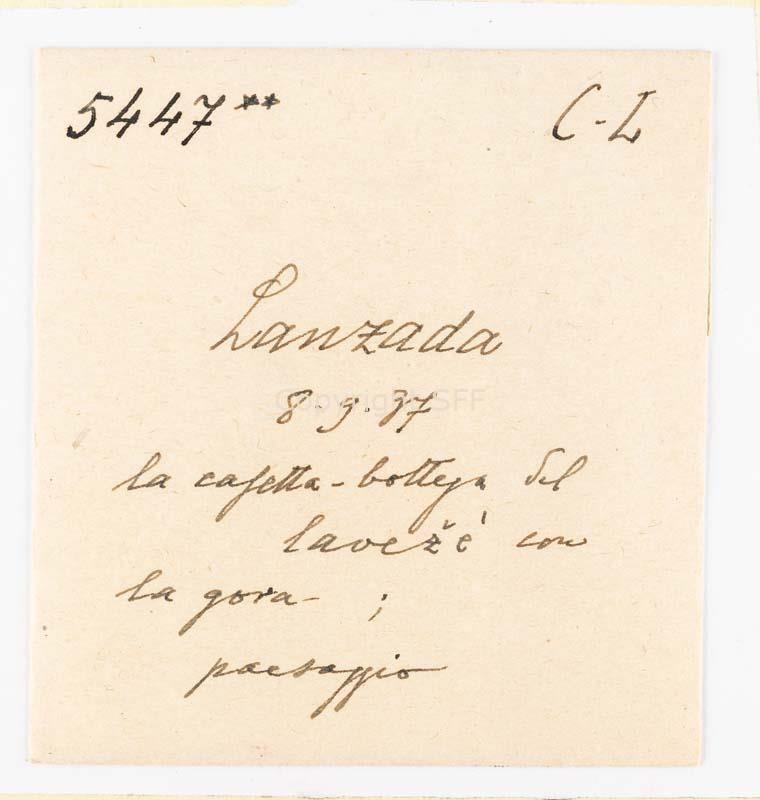 5447** C-L
Lanzada
8.9.37
la casetta-bottega del
lavežé con
la gora- ;
paesaggio
Copyright SFF